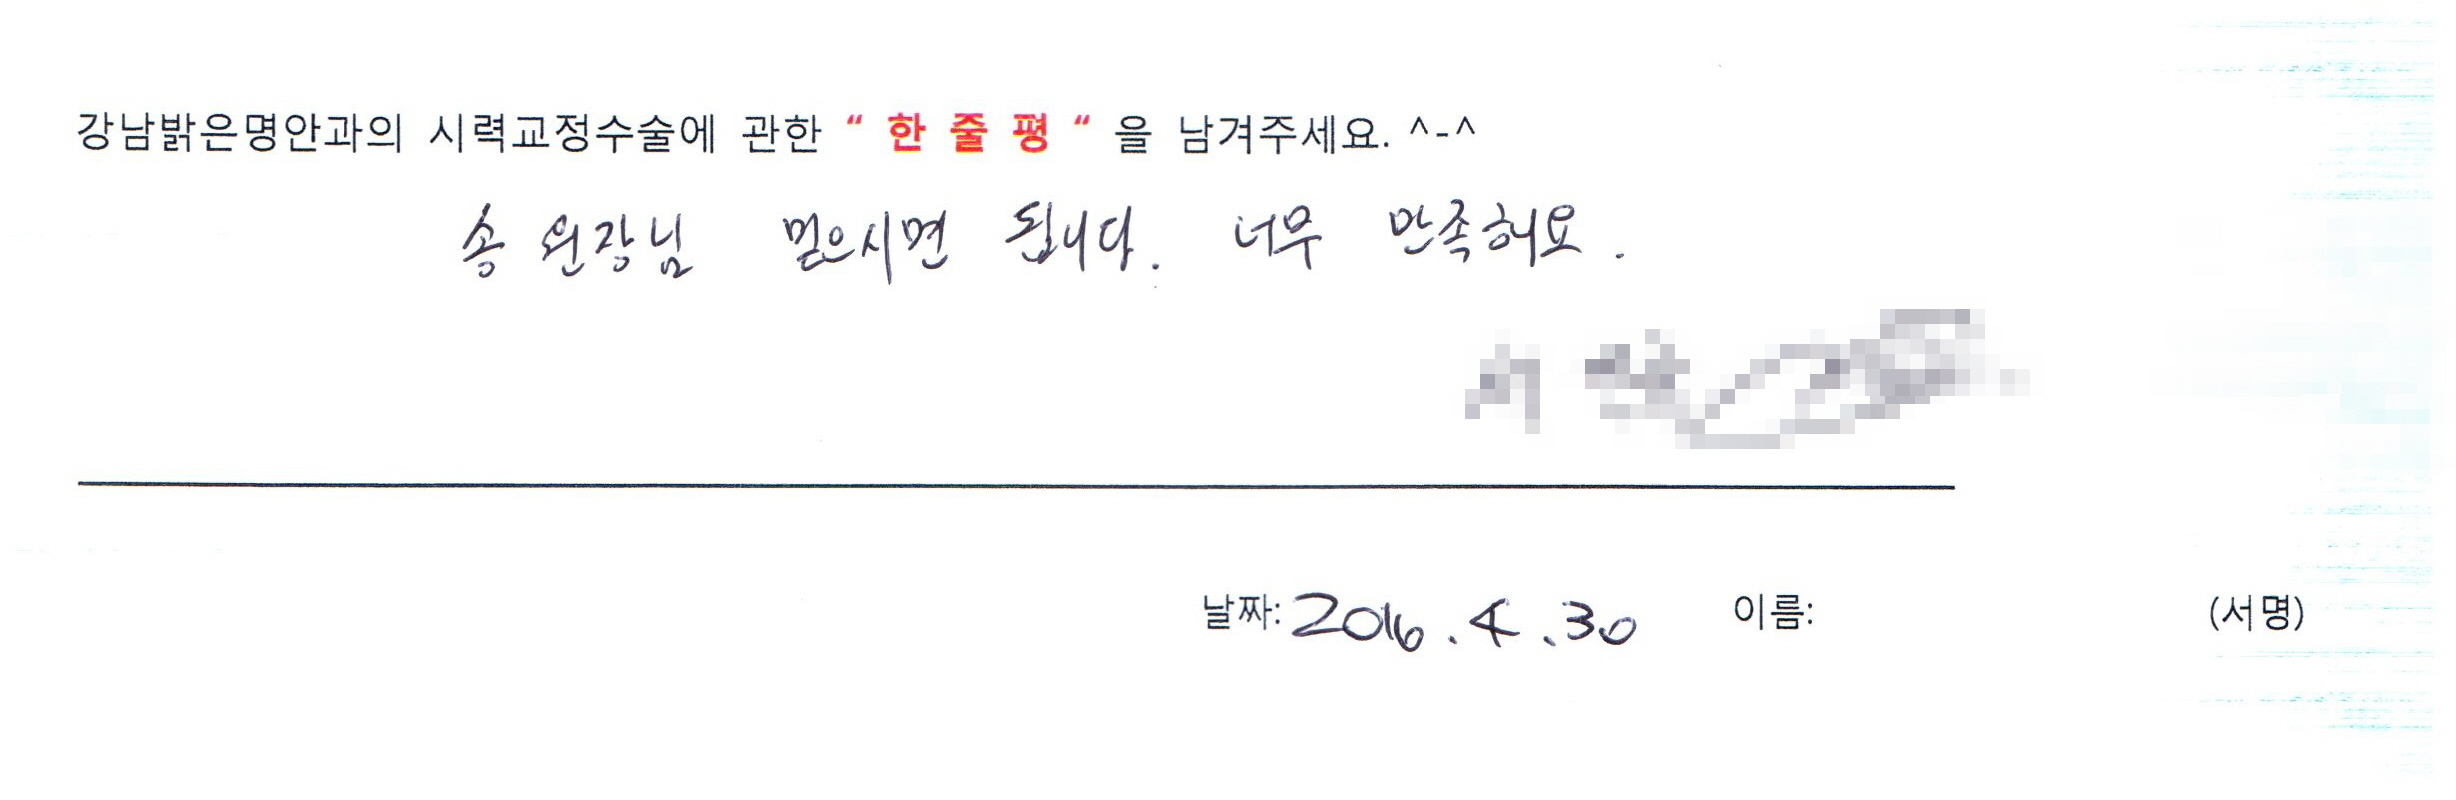 강남밝은명안과의 시력교정수술에 관한 “ 한 줄 평 “ 을 남겨주세요. ^-^
송 원장님 믿으시면 됩니다. 너무 만족해요.
날짜: 2016. 4. 30 이름: (서명)